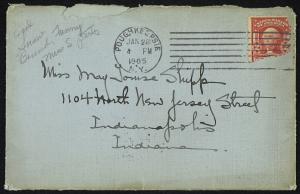 POUGHKEEPSIE
JAN 28
4 PM
1905
N.Y.
Miss May Louise Shipp
1104 North New Jersey Street
Indianapolis
Indiana.